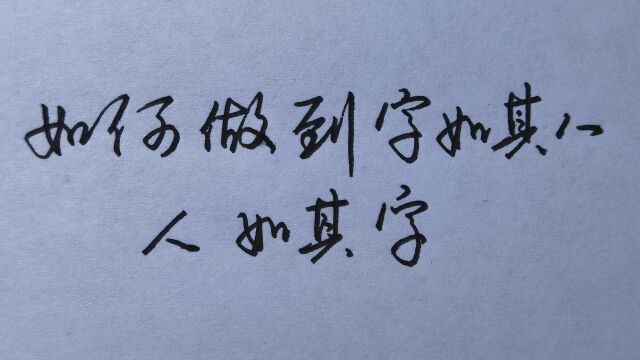 如何做到字如其人
人如其字